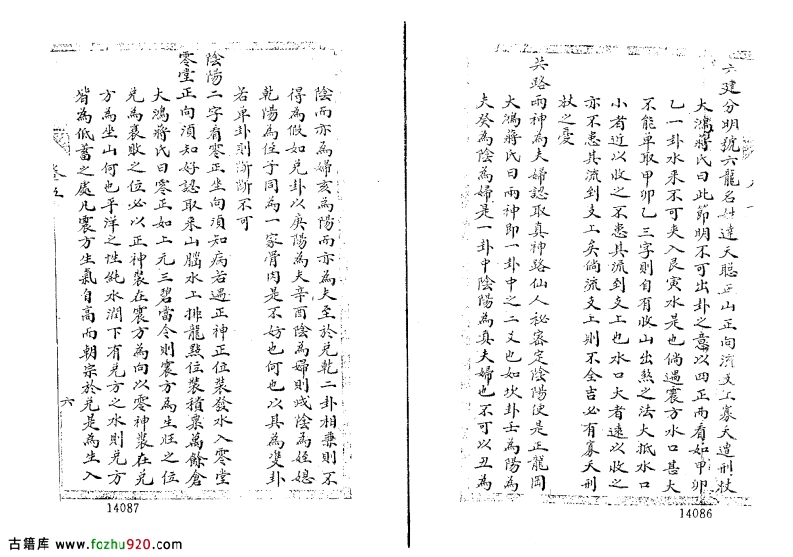 六建分明號六龍名姓達天聰正山正向流支上寡夭遭刑杖
大鴻蔣氏曰此節明不可出卦之意以四正而看如甲卯
乙一卦水来不可夹入艮寅水是也倘遇震方水口甚大
不能单取甲卯乙三字則自有收山出煞之法大抵水口
小者近以收之不患其流到支上也水口大者遠以收之
亦不患其流到支上矣倘流支上則不全吉必有寡夭刑
杖之憂
共路兩神為夫婦認取真神路仙人秘密定陰陽便是正龍岡
大鴻蔣氏曰兩神即一卦中之二爻也如坎卦壬為陽為
夫癸為陰為婦是一卦中陰陽為真夫婦也不可以丑為
陰而亦為婦亥為陽而亦為夫至於兑乾二卦相兼則不
得為假如兑卦以庚陽為夫辛酉陰為婦則戌陰為姪媳
乾陽為住子同為一家骨肉是不妨也何也以其為雙卦
若单卦則斷斷不可
陰陽二字看零正坐向須知病若遇正神正位装發水入零堂
零堂正向須知好認取来山腦水上排龍㸃位装積粟萬餘倉
大鴻蔣氏曰零正如上元三碧當令則震方為生旺之位
兑為衰敗之位必以正神装在震方為向以零神装在兑
方為坐山何也平洋之性純水潤下有兑方之水則兑方
皆為低蓄之處凡震方生氣自高而朝宗於兑是為生入
卷五
六
14087
14086
古籍库 www.fozhu920.com